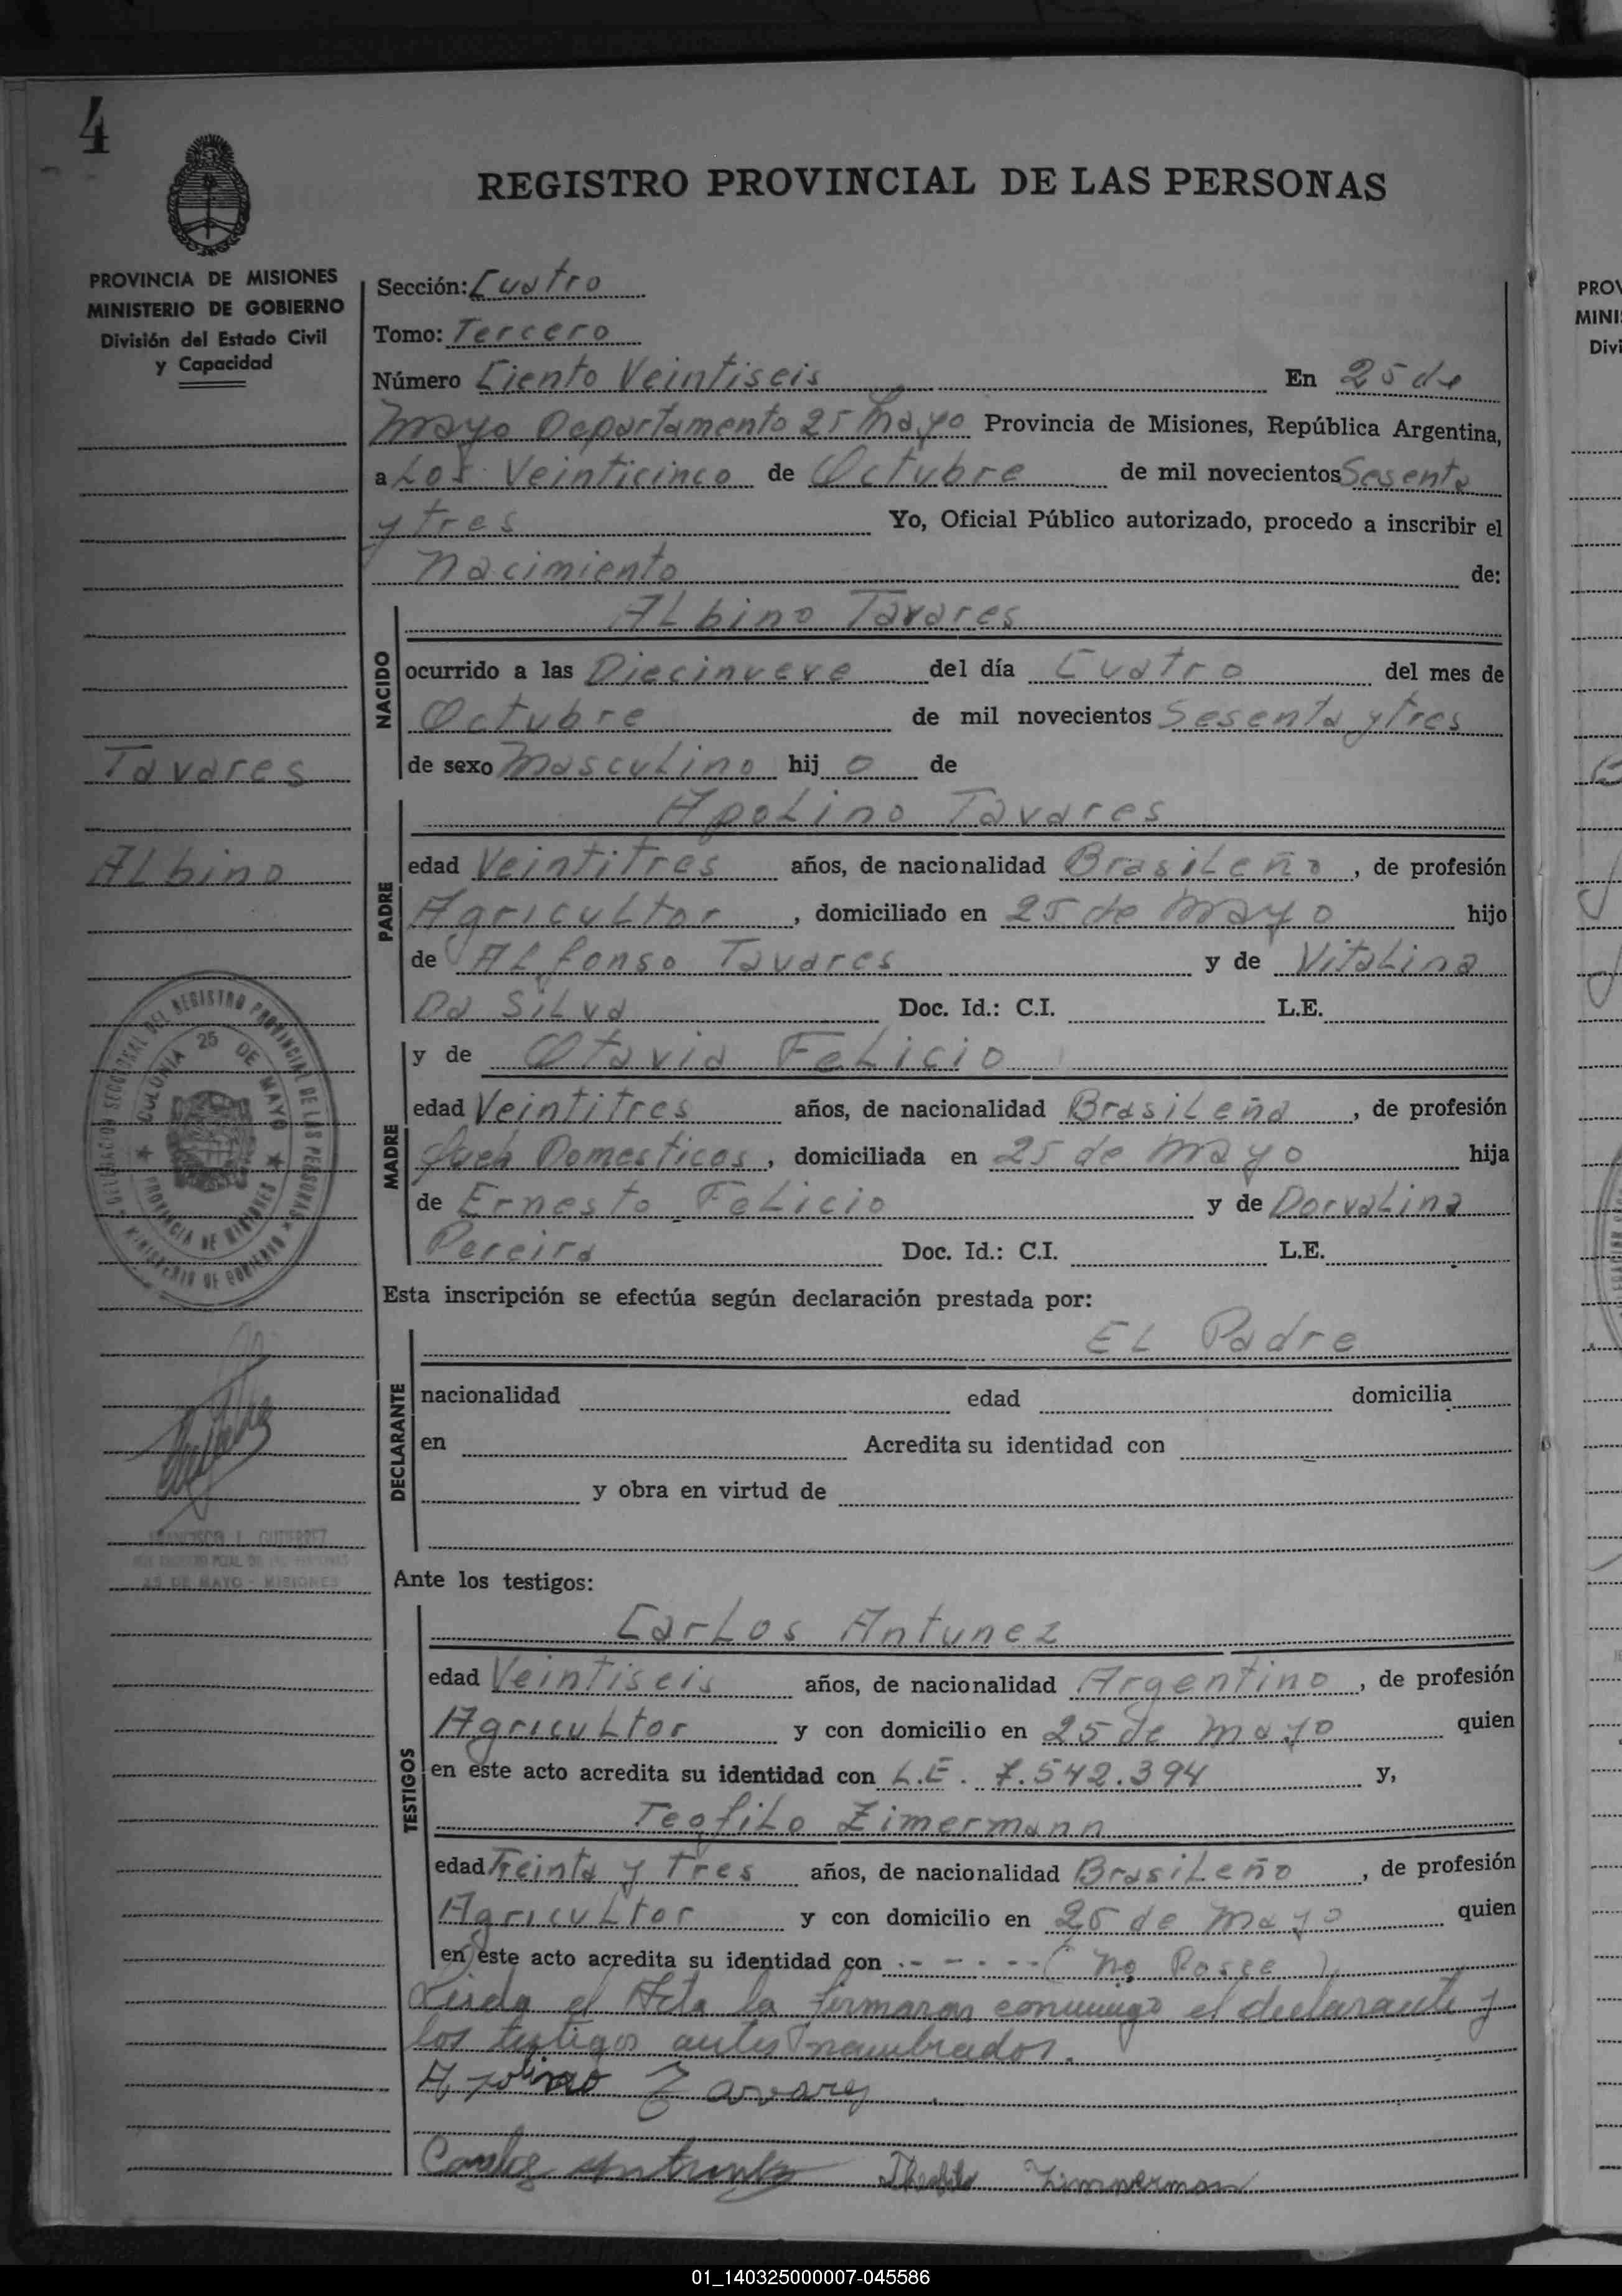 4
REGISTRO PROVINCIAL DE LAS PERSONAS
PROVINCIA DE MISIONES
MINISTERIO DE GOBIERNO
División del Estado Civil
y Capacidad
Sección: Cuatro
Tomo: Tercero
Número Ciento Veintiseis En 25 de
Mayo Departamento 25 Mayo Provincia de Misiones, República Argentina,
a Los Veinticinco de Octubre de mil novecientos Sesenta
y tres Yo, Oficial Público autorizado, procedo a inscribir el
Nacimiento de:
NACIDO
ALbino Tavares
ocurrido a las Diecinueve del día Cuatro del mes de
Octubre de mil novecientos Sesenta y tres
de sexo Masculino hij o de
Tavares
ALbino
PADRE
ApoLino Tavares
edad Veintitres años, de nacionalidad BrasiLeño, de profesión
AgricuLtor, domiciliado en 25 de Mayo hijo
de ALfonso Tavares y de VitaLina
Da SiLva Doc. Id.: C.I. L.E.
MADRE
y de Otavia FeLicio
edad Veintitres años, de nacionalidad BrasiLeña, de profesión
Domesticos, domiciliada en 25 de Mayo hija
de Ernesto FeLicio y de DorvaLina
Pereira Doc. Id.: C.I. L.E.
DELEGACION SECCIONAL DEL REGISTRO PROVINCIAL DE LAS PERSONAS
COLONIA 25 DE MAYO
PROVINCIA DE MISIONES
MINISTERIO DE GOBIERNO
Esta inscripción se efectúa según declaración prestada por:
DECLARANTE
EL Padre
nacionalidad edad domicilia
en Acredita su identidad con
y obra en virtud de
FRANCISCO GUTIERREZ
25 DE MAYO - MISIONES
Ante los testigos:
TESTIGOS
CarLos Antunez
edad Veintiseis años, de nacionalidad Argentino, de profesión
AgricuLtor y con domicilio en 25 de Mayo quien
en este acto acredita su identidad con L.E. 7.542.394 y,
TeofiLo Zimermann
edad Treinta y Tres años, de nacionalidad BrasiLeño, de profesión
AgricuLtor y con domicilio en 25 de Mayo quien
en este acto acredita su identidad con .- - . - - ( No Posee )
Leida el Acta la firmaron conmigo el declarante y
los testigos antes nombrados.
Apolinao Tavares
Carlos Antunez Zimmerman
PROV
MINI
Divi
01_140325000007-045586